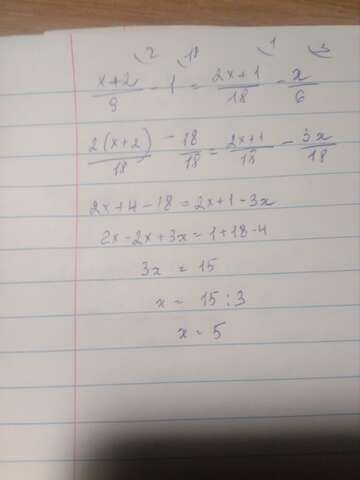 2 18 1 3
x+2/9 - 1 = 2x+1/18 - x/6
2(x+2)/18 - 18/18 = 2x+1/18 - 3x/18
2x+4-18=2x+1-3x
2x-2x+3x=1+18-4
3x = 15
x = 15:3
x = 5